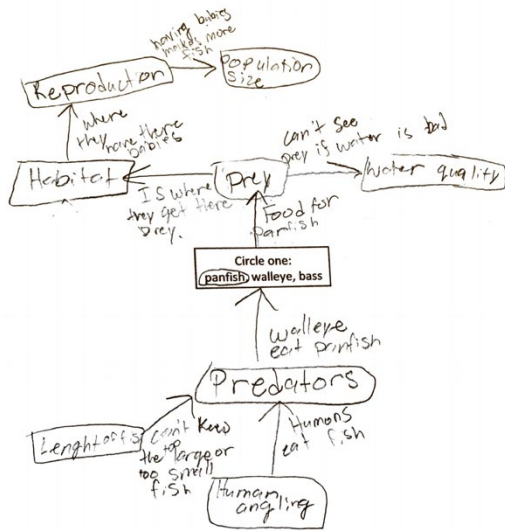 having babies
makes more
fish
Reproduction
Population
Size
where
they
have there
babies
can't see
prey is water is bad
Habitat
Prey
Water quality
Is where
they get there
prey.
Food for
panfish
Circle one:
panfish, walleye, bass
walleye
eat panfish
Predators
Lenght of fis
can't keep
the top large or
too small
fish
Humans
eat fish
Human
angling